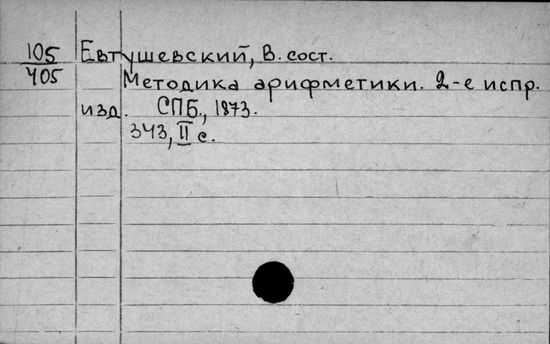 105 Евтушевский, В. сост.
405 Методика арифметики. 2-е испр.
изд. СПБ., 1873.
343, II с.